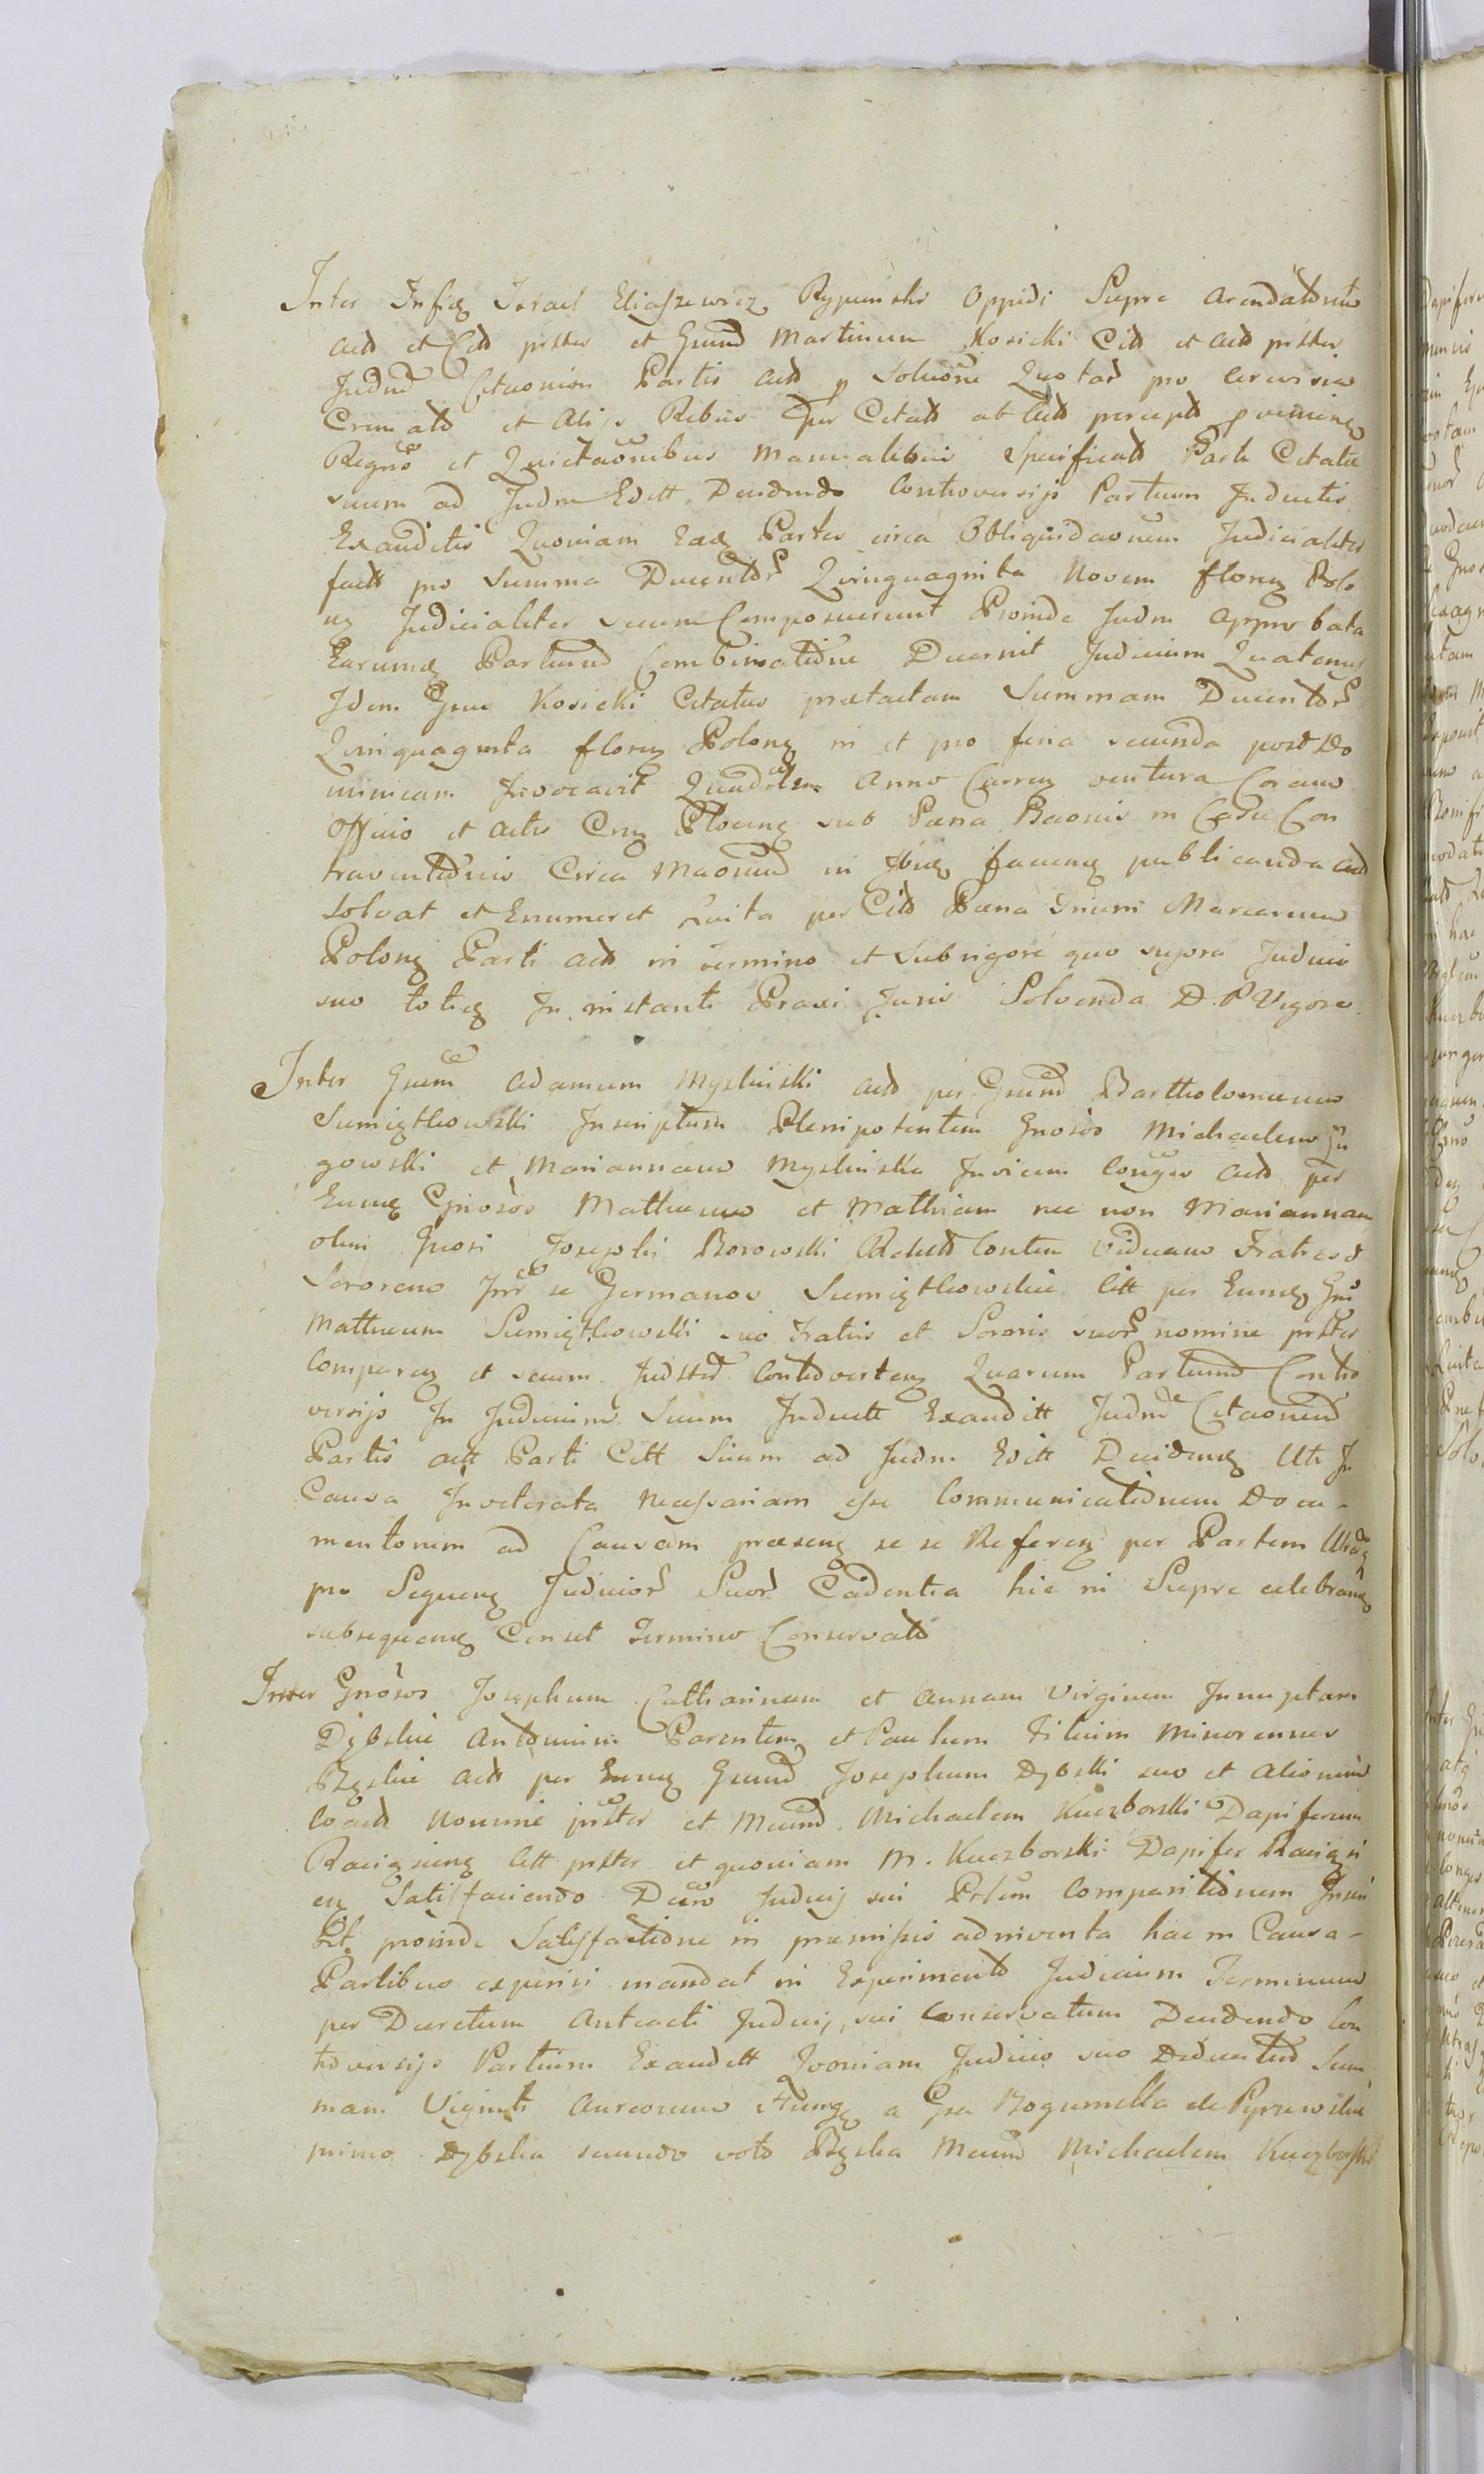 Inter Infiq Israel Eliaszewicz Rypinski Oppidi Sierpc Arendatorem
Actt et Citt prster et Gnum Martinum Kosicki Citt et Actt prster
Judm Citaonem Partis Actt Solutione Quotar pro Cerevisia
Cremato et Alijs Rebus per Citatt ab Actt percept
Regno et Quietaonibus Manualibus Specificatt Parti Citatae
suum ad Judm Editt Decidendo Controversijs Partium Inductis
Exauditis Quoniam Eaeq Partes circa Obliquidaonem Judicialiter
fact pro Summa Ducentor Quinquaginta Novem floren Polo
nq Judicialiter secum Composuerunt Proinde Judm Approbata
Earumq Partium Combinatione Decernit Judicium Quatenus
Idem Gnus Kosicki Citatus praetactam Summam Ducentor
Quinquaginta florenq Polonq in et pro feria secunda post Do
minicam Invocavit Quadrlem Anno Currenq ventura Coram
Officio et Actis Crnq Plocenq sub Paena Baonis in Casu Con
traventionis Circa Maonem in fovenq publicanda Actt
Solvat et Enumeret Luita per Citt Paena Trium Marcarum
Polonq Parti Actt in Termino et Sub rigore quo supra Judicio
suo totieq In instanti Praxi Juris Solvenda D. P Vigore
Inter Gnum Adamum Mysliński Actt per Gnum Bartholomaeum
Sumiętkowski Inscriptum Plenipotentem Gnosos Michaelem
gowski et Mariannam Myslińska Invicem Conges Actt per
Eumq Gnosos Matheum et Mathiam nec non Mariannam
olim Gnosi Josephi Borowski Relictt Contm Viduam Fratres et
Sororem Inr se Germanos Sumiętkowskie Citt per Eumq Gnu
Matheum Sumiętkowski suo Fratris et Sororis suor nomine prster
Comparenq et secum Judster Controvertenq Quarum Partium Contro
versijs In Judicium Suum Inductt Exauditt Judm Citaonem
Partis Actt Parti Citt Suum ad Judm Editt Decidenq Uti In
Causa Inveterata Necessariam esse Communicationem Docu-
mentorum ad Causam praesenq se se Referenq per Partem
pro Sequenq Judicior Suor Cadentia hic in Sierpc celebranq
subsequenq Censet Termino Conservato
Inter Gnosos Josephum Catharinam et Annam Virginem Innuptam
Dybskie Antoninum Parentem et Paulum Filium Minorennes
Bęskie Actt per Eumq Gnum Josephum Dybski suo et Aliorum
Coactt Nomine prster et Mcum Michaelem Kuczborski Dapiferum
Raciązenq Citt prster et quoniam M. Kuczborski Dapifer Raciązi
enq Satisfaciendo Decro Judicij sui Prlem Comparitionem Inscri
psit proinde Satisfactione in praemissis adinventa hac in Causa-
Partibus experiri mandat in Experimento Judicium Terminum
per Decretum Anteacti Judicij sui Conservatum Decidendo Con
troversijs Partium Exauditt Quoniam Judicio suo Deductum Sum
mam Viginti Aureorum Hungq a Gsa Bogumilla de Pyrzewskie
primo Dybska secundo voto Bęska Mcum Michaelem Kuczborski